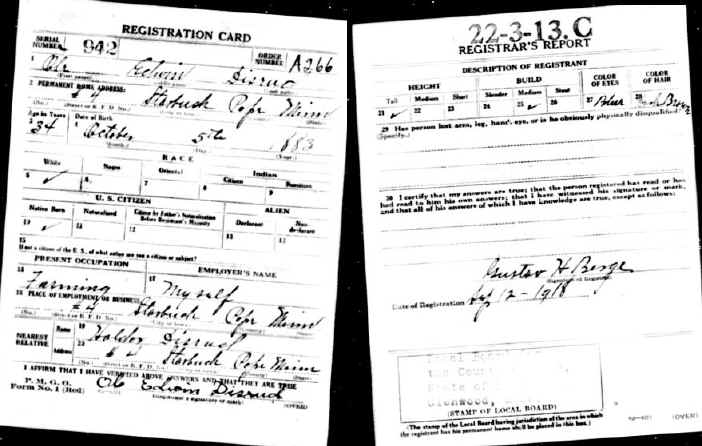 REGISTRATION CARD
SERIAL NUMBER 942
ORDER NUMBER A266
1 Ole Edwin Disrud
2 PERMANENT HOME ADDRESS:
#4 Starbuck Pope Minn
Age in Years
Date of Birth
34 October 5th 1883
RACE
White
Negro
Oriental
Indian
Citizen
Noncitizen
5 6 7 8 9
U. S. CITIZEN
ALIEN
Native Born
Naturalized
Citizen by Father's Naturalization Before Registrant's Majority
Declarant
Non-declarant
10 11 12 13 14
15
If not a citizen of the U. S., of what nation are you a citizen or subject?
PRESENT OCCUPATION
EMPLOYER'S NAME
16 Farming
17 Myself
18 PLACE OF EMPLOYMENT OR BUSINESS:
#4 Starbuck Pope Minn
NEAREST RELATIVE
Name 19 Disrud
Address 20 #4 Starbuck Pope Minn
I AFFIRM THAT I HAVE VERIFIED ABOVE ANSWERS AND THAT THEY ARE TRUE
P. M. G. O.
Form No. 1 (Red)
Ole Edwin Disrud
(OVER)
22-3-13. C
REGISTRAR'S REPORT
DESCRIPTION OF REGISTRANT
HEIGHT
BUILD
COLOR OF EYES
COLOR OF HAIR
Tall
Medium
Short
Slender
Medium
Stout
21 22 23 24 25 26 27 Blue 28
29 Has person lost arm, leg, hand, eye, or is he obviously physically disqualified?
(Specify.)
30 I certify that my answers are true; that the person registered has read or has
had read to him his own answers; that I have witnessed his signature or mark,
and that all of his answers of which I have knowledge are true, except as follows:
Gustav H Berge
Date of Registration Sep 12-1918
Glenwood,
(STAMP OF LOCAL BOARD)
(The stamp of the Local Board having jurisdiction of the area in which
the registrant has his permanent home shall be placed in this box.)
(OVER)